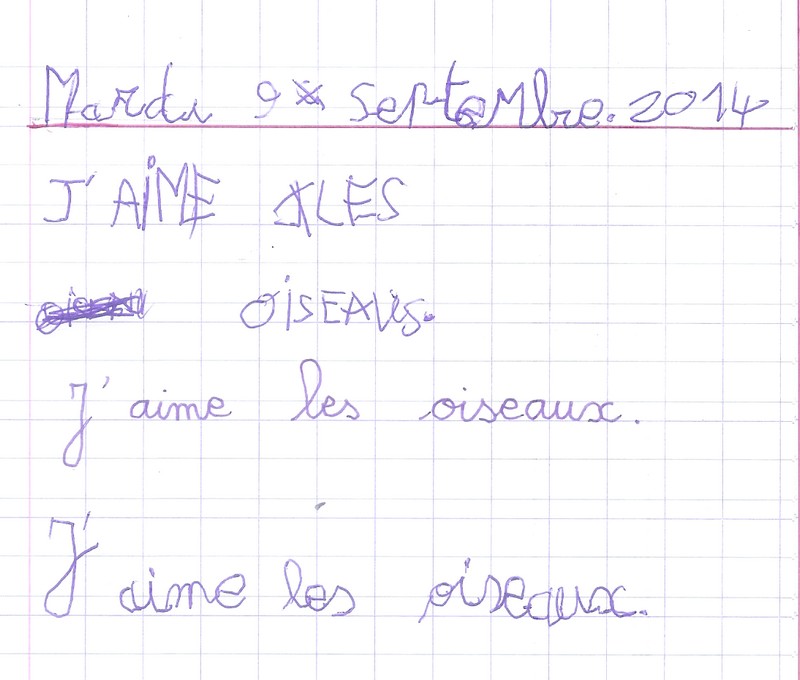 Mardi 9 septembre. 2014
J'AIME LES
OISEAUS.
J'aime les oiseaux.
J'aime les oiseaux.